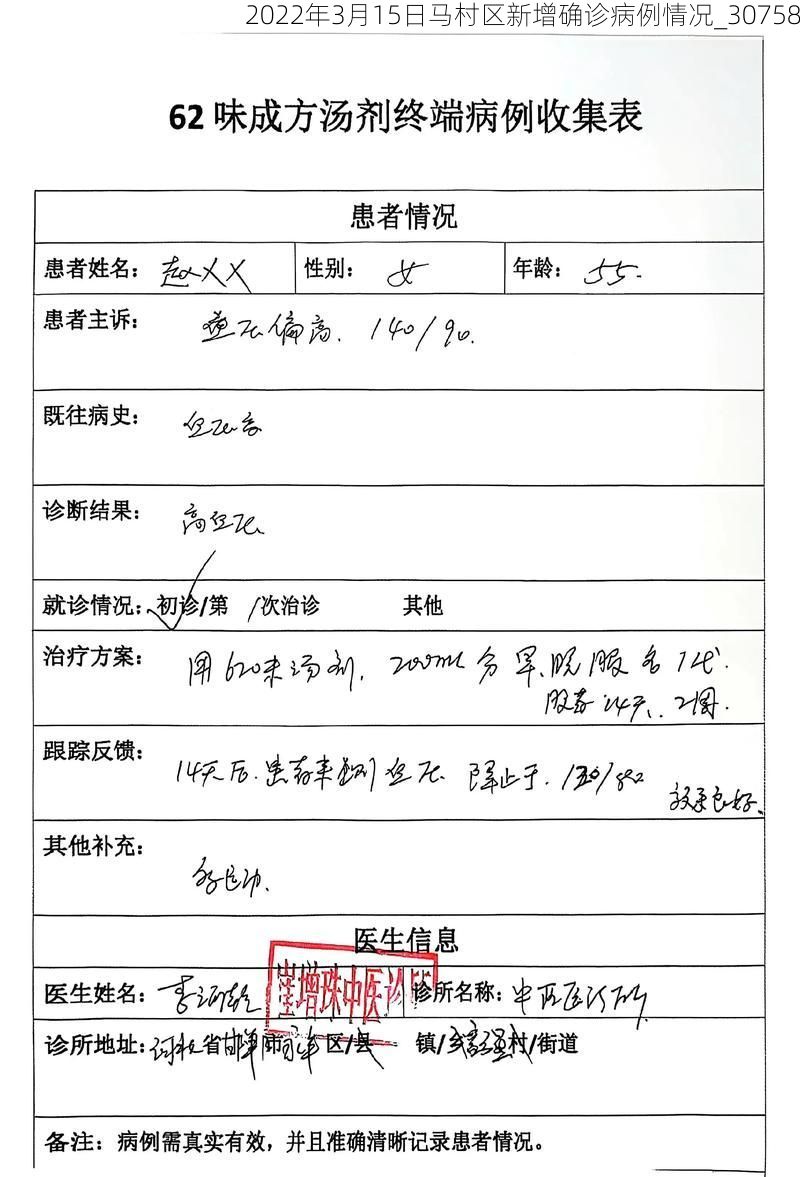 2022年3月15日马村区新增确诊病例情况_30758
62味成方汤剂终端病例收集表
患者情况
患者姓名： 赵XX 性别： 女 年龄： 55.
患者主诉： 血压偏高. 140/90.
既往病史： 血压高
诊断结果： 高血压
就诊情况： 初诊/第 /次治诊 其他
治疗方案： 用62味汤剂, 200ml 分早、晚服各1代.
服药14天、2周.
跟踪反馈： 14天后. 患者来 血压
效果良好.
其他补充：
医生信息
崔增珠中医诊所
医生姓名： 诊所名称： 中医诊所
诊所地址： 河北省邯郸市 区/县 镇/乡 村/街道
备注：病例需真实有效，并且准确清晰记录患者情况。